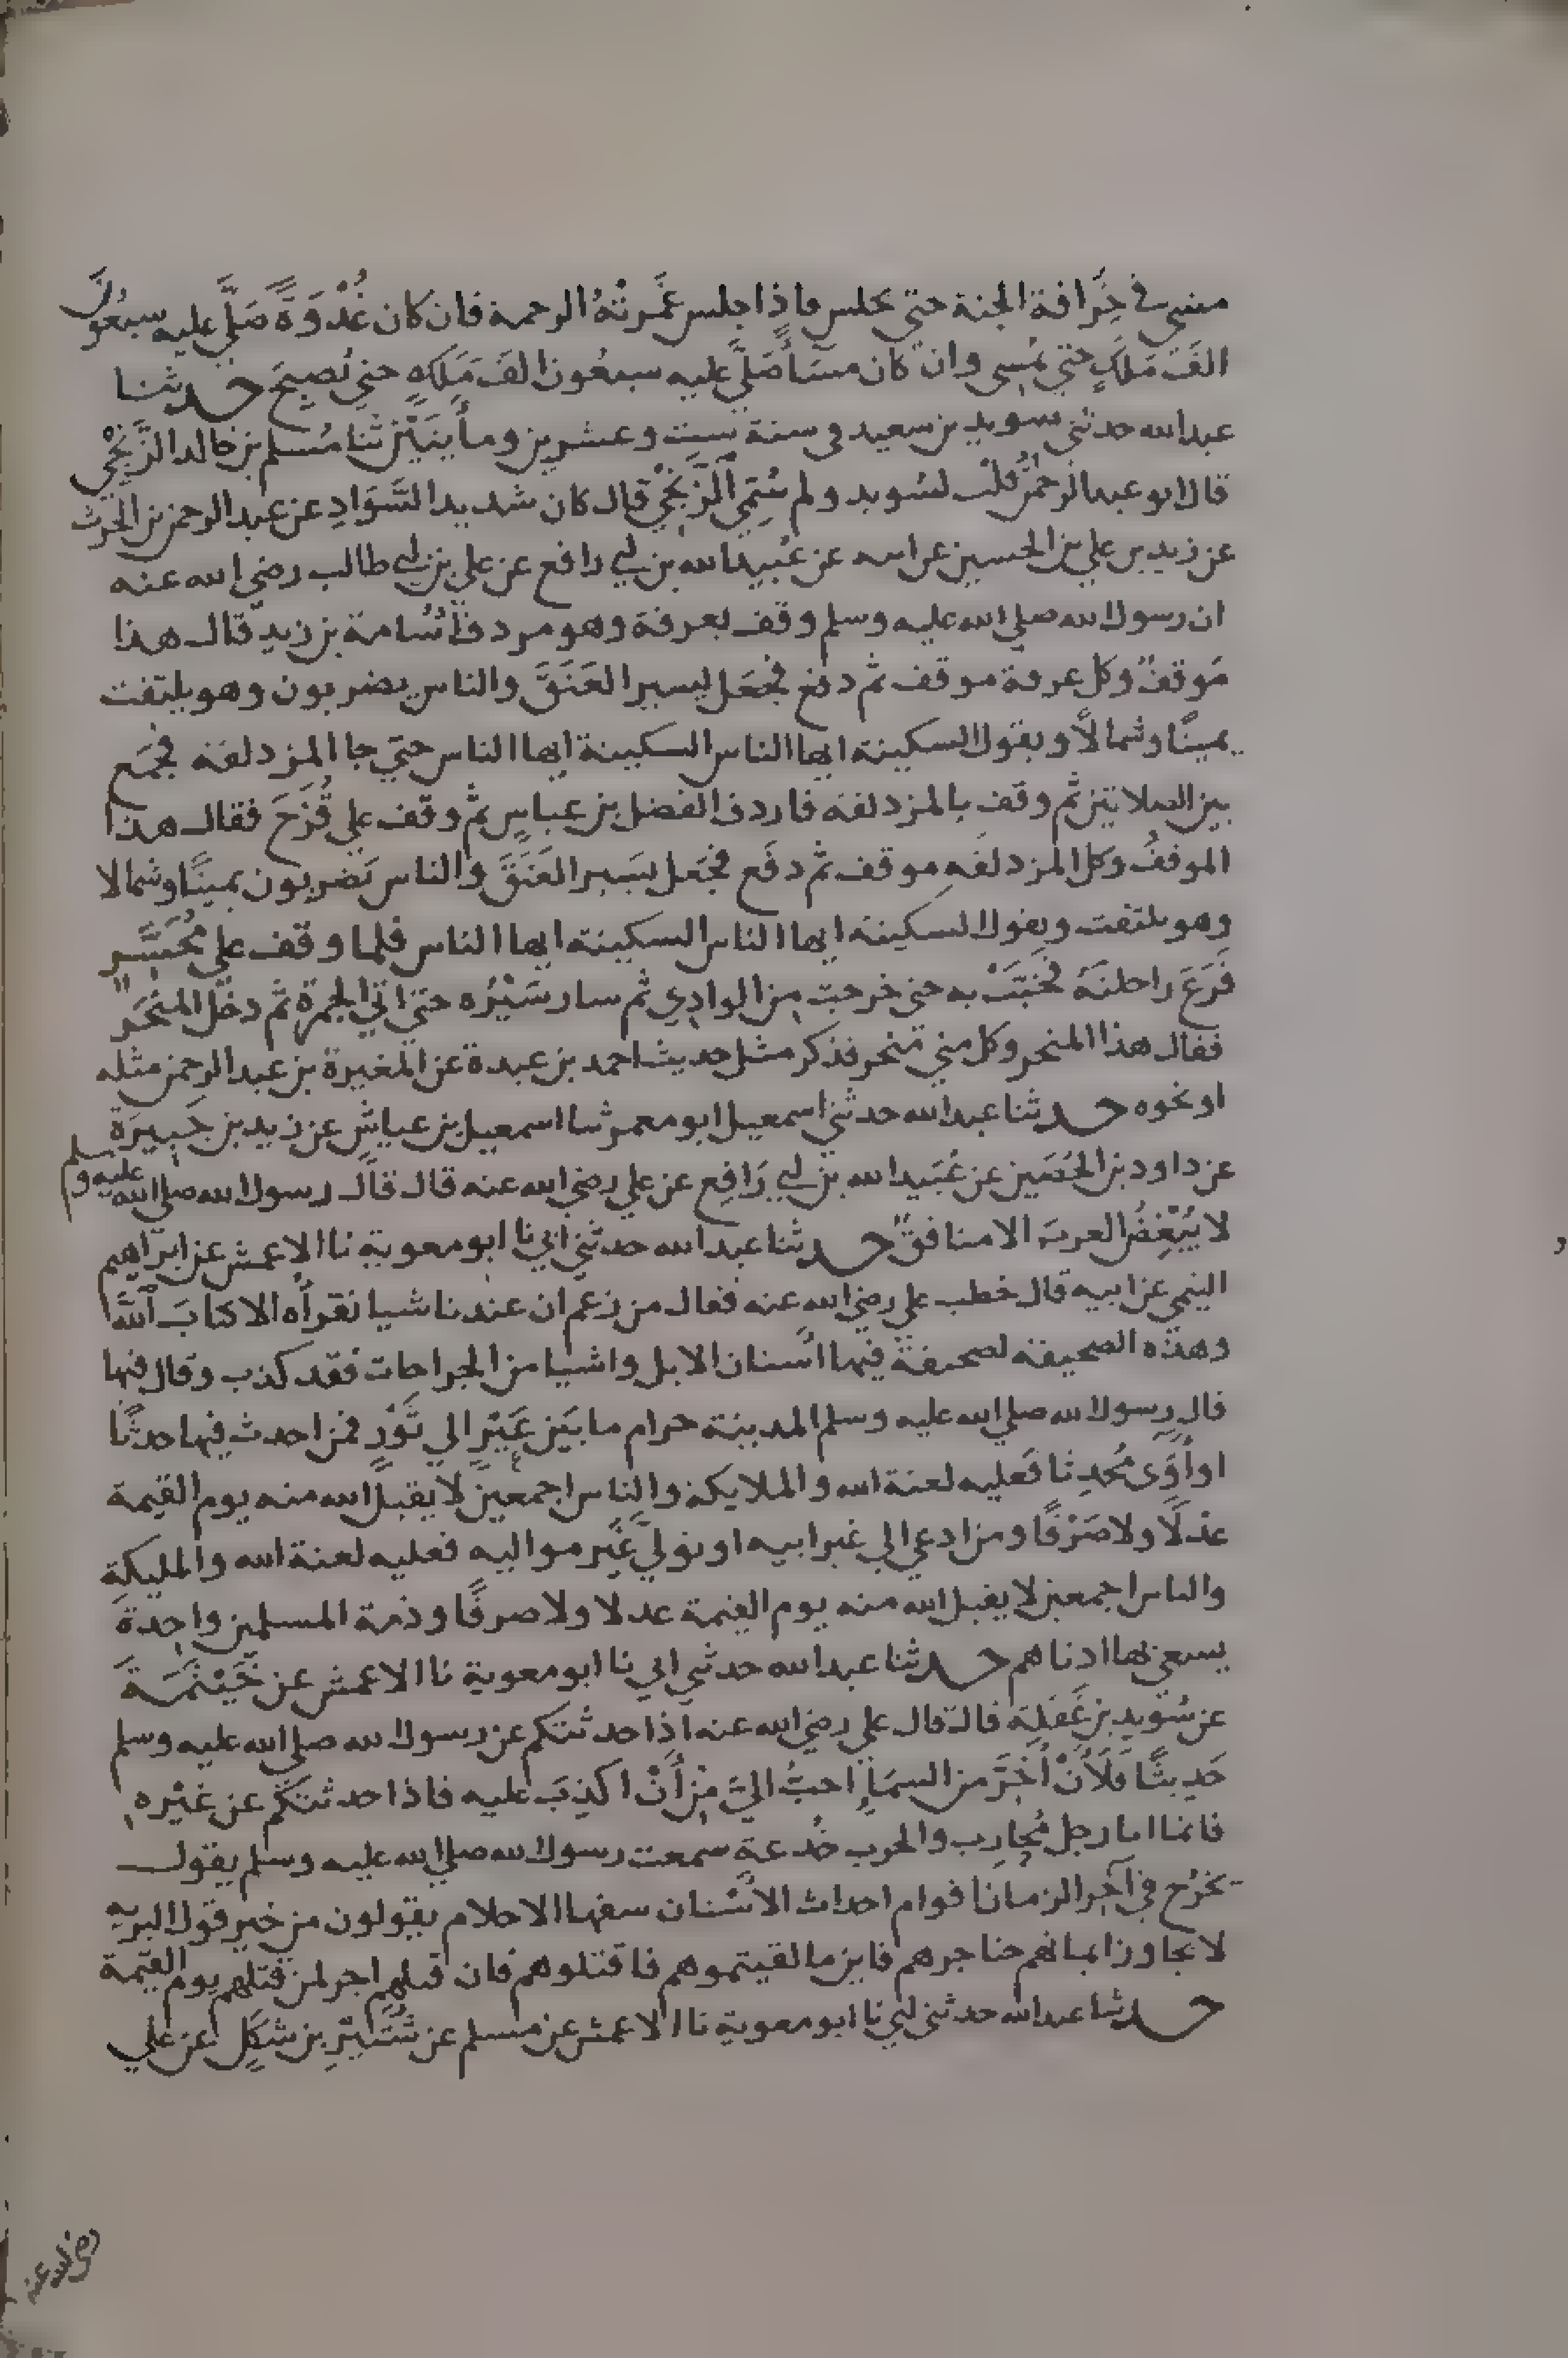 مشى في خِرَافة الجنة حتى يجلس فاذا جلس غَمَرتْهُ الرحمة فان كان غُدْوَةً صَلَّى عليه سبعُونَ
الفَ مَلَكٍ حتى يمُسى وان كان مسَاً صَلَّى عليه سبعُون الفَ مَلَكٍ حتى يُصبحَ حدثنا
عبدالله حدثنى سويد بن سعيد في سنة سِت وعشرين ومأيتَيْن ثنا مُسلم بن خالد الزَّنْجِى
قال ابو عبدالرحمن قلت لسُويد ولم سُمِّى الزَّنجْىَّ قال كان شديد السَّوَادِ عن عبدالرحمن بن الحرث
عن زيد بن علي بن الحسين عن ابيه عن عُبيدالله بن ابي رافع عن علي بن ابي طالب رضي الله عنه
ان رسول الله صلي الله عليه وسلم وقف بعرفة وهو مردف اُسامة بن زيد قال هذا
مَوقفٌ وكل عرفة موقف ثم دفع فجعَل يسير العَنَقَ والناس يضربون وهو يلتفت
يمينًا وشمالًا ويقول السكينة ايها الناس السكينة ايها الناس حتي جا المزدلفة فجمَع
بين الصلاتين ثم وقف بالمزدلفة فاردف الفضل بن عباسٍ ثم وقف علي قُزَحَ فقال هذا
الموقفُ وكل المزدلفةِ موقف ثم دفَع فجَعل يسَير العَنَقَ والناس يَضربون يمينًا وشمالا
وهو يلتفت ويقول السكينة ايها الناس السكينة ايها الناس فلما وقف علي مُحَسِّرٍ
قَرَعَ راحلتَهُ فخَبَّتْ به حتى خرجت من الوادِي ثم سار سَيْرَه حتي اتي الجمرة ثم دخل المنحَر
فقال هذا المنحر وكل مني منحر فذكر مثل حديث احمد بن عبدة عن المغيرة بن عبد الرحمن مثله
او نحوه حدثنا عبدالله حدثنى اسمعيل ابو معمر ثنا اسمعيل بن عياشٍ عن زيد بن جَبِيرَة
عن داود بن الحُصَين عن عُبَيدالله بن ابي رَافِع عن علي رضي الله عنه قال قال رسول الله صلي الله عليه وسلم
لا يُبْغِضُ العربَ الا منافقٌ حدثنا عبدالله حدثني ابي نا ابو معوية نا الاعمش عن ابراهيم
التيمي عن ابيه قال خطب علي رضي الله عنه فقال من زعم ان عندنا شيا نقرأُه الا كتابَ الله
وهذه الصحيفة لصحيفة فيها اسنان الابل واشيا من الجراحات فقد كذب وقال فيها
قال رسول الله صلي الله عليه وسلم المدينة حرام ما بَين عَيْرٍ الي ثَوْرٍ فمن احدث فيها حدثًا
او آوَى مُحدِثا فعليه لعنة الله والملايكة والناس اجمعين لا يقبل الله منه يوم القيمة
عدلًا ولا صَرْفًا ومن ادعي الي غير ابيه او تولي غَير مواليه فعليه لعنة الله والمليكةِ
والناس اجمعين لا يقبل الله منه يوم القيمة عدلا ولا صرفًا وذمة المسلمين واحِدة
يسعي بها ادناهم حدثنا عبدالله حدثني ابي نا ابو معوية نا الاعمش عن خَيْثَمَةَ
عن سُوَيد بن غَفَلة قال قال علي رضي الله عنه اذا حدثتكم عن رسول الله صلي الله عليه وسلم
حَديثًا فَلَأَنْ أَخِرَّ من السمَاءِ احبُّ اليَّ مِن أَنْ اكذِبَ عليه فاذا حدثتكم عن غيْره
فانما انا رجل مُحارِب والحرب خُدعة سمعت رسول الله صلي الله عليه وسلم يقول
يخرُج في آخِر الزمان اقوام احداث الاسْنان سفها الاحلام يقولون من خير قول البريه
لا يجاوز ايمانهم حناجرهم فاين ما لقيتموهم فاقتلوهم فان قتلهم اجر لمن قتلهم يوم القيمة
حدثنا عبدالله حدثني ابي نا ابو معوية نا الاعمش عن مسلم عن شُتَيْرِ بن شَكَلٍ عن علي
رضي الله عنه